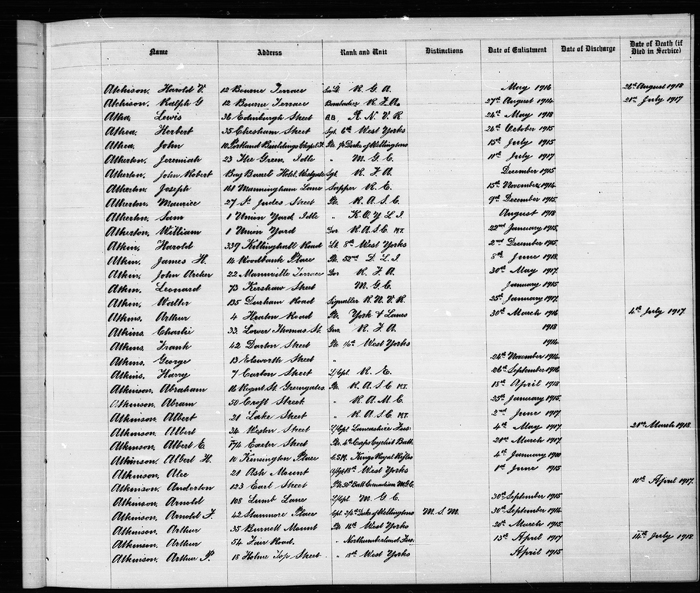 Name Address Rank and Unit Distinctions Date of Enlistment Date of Discharge Date of Death (if Died in Service)
Atchison, Harold V. 12 Bourne Terrace R. G. A. May 1916 26th August 1918
Atchison, Ralph G 12 Bourne Terrace Bombardier R. F. A. 27th August 1914 28th July 1917
Athea, Lewis 36 Edinburgh Street A.B. R. N. V. R 24th May 1918
Athea, Herbert 35 Chesham Street Sgt. 6th West Yorks 24th October 1915
Athea, John 10 Portland Buildings Pte Duke of Wellingtons 15th July 1915
Atherton, Jeremiah 23 Hee Green, Idle " M. G. C. 11th July 1917
Atherton, John Robert Boy Barrel Hotel, Westgate Sgt R. F. A December 1915
Atherton, Joseph 141 Manningham Lane Sapper R. E. 15th November 1914
Atherton, Maurice 27 St. Judes Street Pte. R. A. S. C. 9th December 1915
Atherton, Sam 1 Union Yard Idle " K. O. Y. L. I August 1918
Atherton, William 1 Union Yard Dvr R. A. S. C. M.T. 22nd January 1915
Atkin, Harold 339 Killinghall Road Lt 8th West Yorks 2nd December 1915
Atkin, James H. 14 Woodbank Place Pte. 52nd D. L. I 8th June 1918
Atkin, John Archer 22 Mannville Terrace Gnr R. F. A. 30th May 1917
Atkin, Leonard 73 Kershaw Street M. G. C. January 1915
Atkin, Walter 135 Durham Road Signaller R. N. V. R 25th January 1917
Atkins, Arthur 4 Heaton Road Pte York & Lancs 30th March 1916 4th July 1917
Atkins, Charlie 33 Lower Thomas St. Gnr. R. F. A 1918
Atkins, Frank 42 Darton Street Pte 1/6th West Yorks 1914
Atkins, George 13 Elsworth Street " 24th November 1914
Atkins, Harry 7 Carton Street L/Cpl R. E. 26th September 1914
Atkinson, Abraham 16 Regent St. Greengates Pte. R. A. S. C M.T. 15th April 1918
Atkinson, Abram 50 Croft Street " R. A. M. C. 25th January 1915
Atkinson, Albert 21 Lake Street " R. A. S. C M.T. 2nd June 1917
Atkinson, Albert 34 Hexton Street L/Cpl Lancashire Fus. 4th May 1917 28th March 1918
Atkinson, Albert E. 74 Exeter Street Pte. Cyclist Batt. 28th March 1917
Atkinson, Albert H. 10 Kensington Place Kings Royal Rifles 4th January 1900
Atkinson, Alec 21 Ash Mount West Yorks 1st June 1915
Atkinson, Anderton 123 Earl Street Pte Canadian M.G.C 10th April 1917
Atkinson, Arnold 108 Lunt Lane L/Cpl M. G. C 30th September 1915
Atkinson, Arnold F. 42 Stanmore Place Cpl Duke of Wellingtons M. S. M. 30th September 1914
Atkinson, Arthur 35 Burnett Mount Pte 16th West Yorks 26th March 1915
Atkinson, Arthur 54 Fair Road " Northumberland Fus. 13th April 1917 14th July 1918
Atkinson, Arthur P. 18 Holme Top Street " 18th West Yorks April 1915